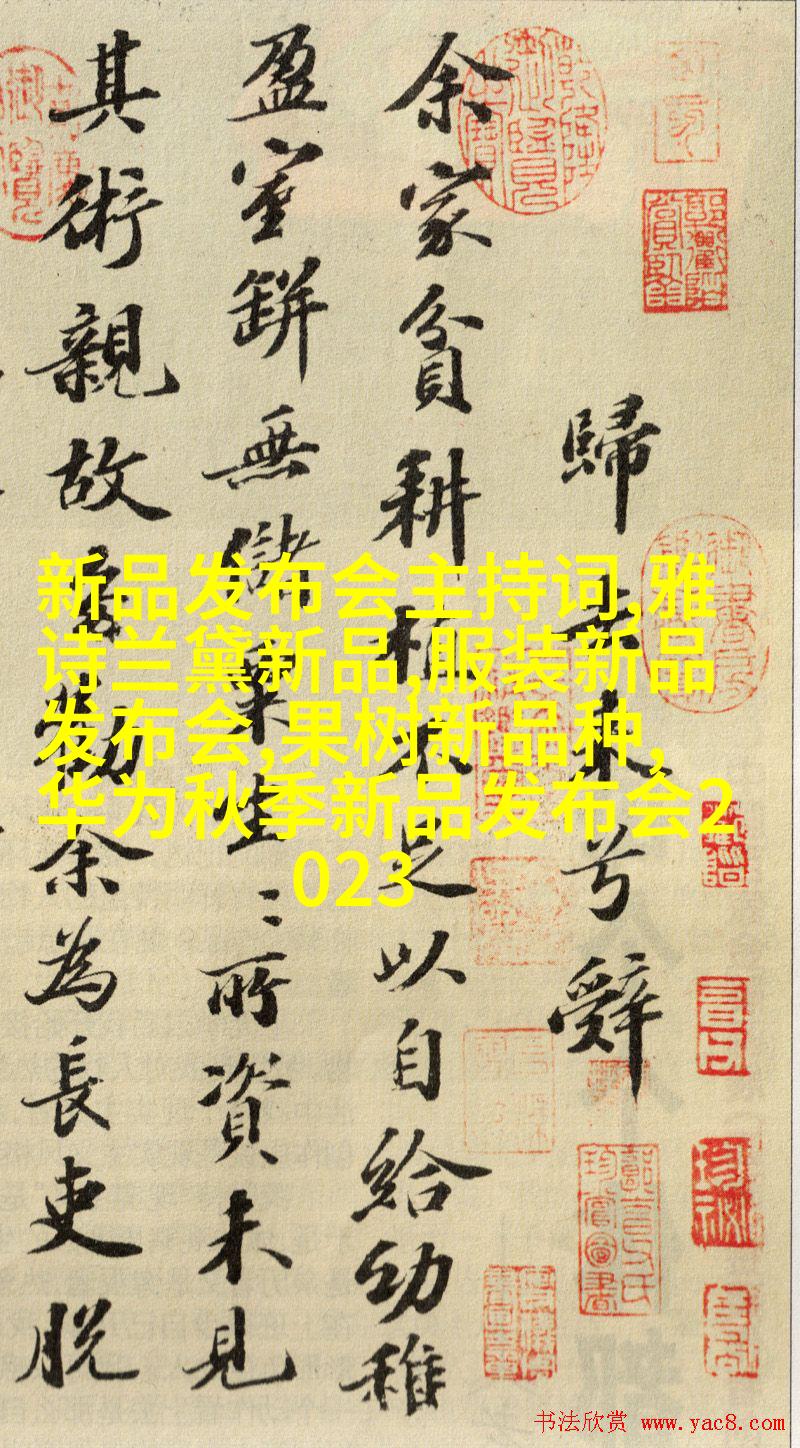 歸去来兮辭
余家貧耕植不足以自給幼稚
盈室缾無儲粟生〻所資未見
其術親故多勸余為長吏脱
新品发布会主持词,雅
诗兰黛新品,服装新品
发布会,果树新品种,
华为秋季新品发布会2
023
书法欣赏 www.yac8.com